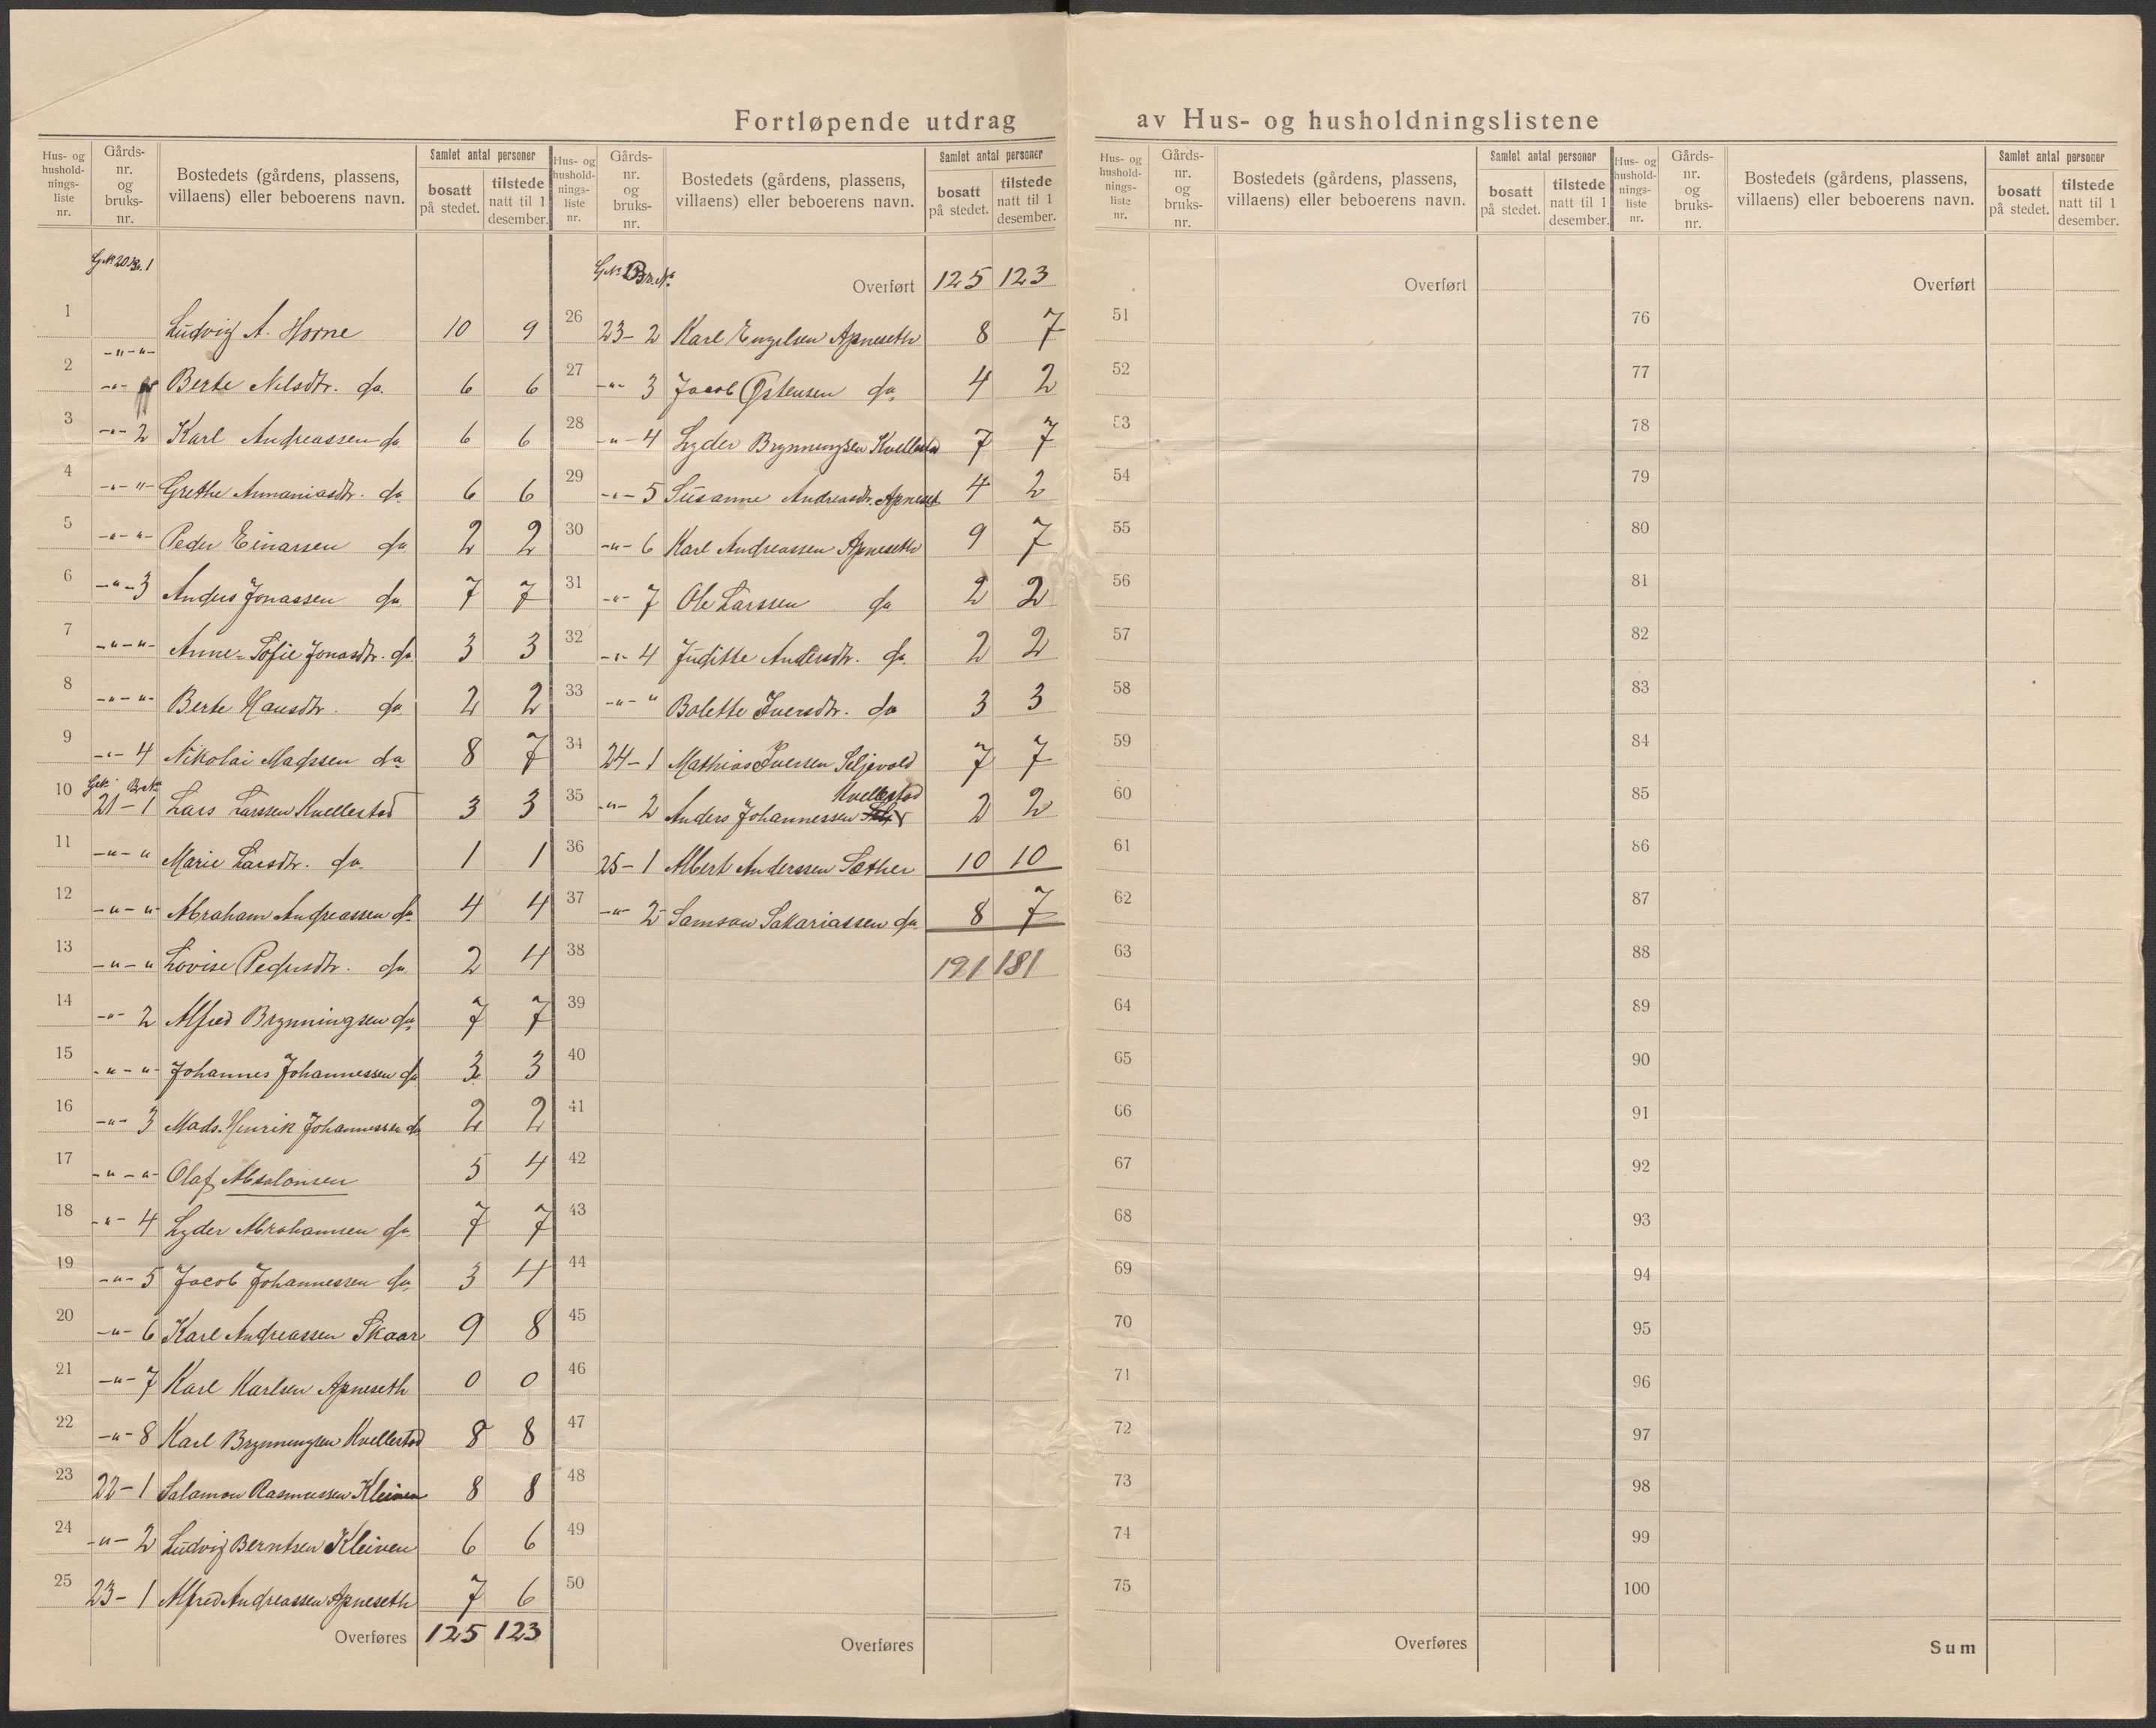 Fortløpende utdrag av Hus- og husholdningslistene
Hus- og hushold- nings- liste nr.
Gårds- nr. og bruks- nr.
Bostedets (gårdens, plassens, villaens) eller beboerens navn.
Samlet antal personer
bosatt på stedet.
tilstede natt til 1 desember.
G.Nr. 20 Br. 1
1 Ludvig A. Horne 10 9
-"-"-
2 -"- Berte Nelsdtr. do. 6 6
3 -"- 2 Karl Andreassen do 6 6
4 -"- " Grethe Annaniasdtr. do 6 6
5 -"-"- Peder Einarsen do 2 2
6 -"- 3 Anders Jonassen do 7 7
7 -"-"- Anne-Sofie Jonasdtr. do 3 3
8 -"-"- Berte Hansdtr. do 2 2
9 -"- 4 Nikolai Madssen do 8 7
G.Nr. Br.Nr.
10 21-1 Lars Larssen Kvellestad 3 3
11 -"- " Marie Larsdtr. do. 1 1
12 -"-"- Abraham Andreassen do 4 4
13 -"-" Lovise Pedersdtr. do 2 4
14 -"- 2 Alfred Brynningsen do 7 7
15 -"-"- Johannes Johannessen do 3 3
16 -"- 3 Mads. Henrik Johannessen do 2 2
17 -"-"- Olaf Absalonsen 5 4
18 -"- 4 Lyder Abrahamsen do 7 7
19 -"- 5 Jacob Johannessen do 3 4
20 -"- 6 Karl Andreassen Skaar 9 8
21 -"- 7 Karl Karlsen Apneseth 0 0
22 -"- 8 Karl Brynningsen Kvellestad 8 8
23 22-1 Salamon Rasmussen Kleiven 8 8
24 -"- 2 Ludvig Berntsen Kleiven 6 6
25 23-1 Alfred Andreassen Apneseth 7 6
Overføres 125 123
Hus- og hushold- nings- liste nr.
Gårds- nr. og bruks- nr.
Bostedets (gårdens, plassens, villaens) eller beboerens navn.
Samlet antal personer
bosatt på stedet.
tilstede natt til 1 desember.
G.Nr. Br.Nr.
Overført 125 123
26 23-2 Karl Engelsen Apneseth 8 7
27 -"- 3 Jacob Østensen do 4 2
28 -"- 4 Lyder Brynningsen Kvellestad 7 7
29 -"- 5 Susanne Andreasdtr. Apneset 4 2
30 -"- 6 Karl Andreassen Apneseth 9 7
31 -"- 7 Ole Larssen do 2 2
32 -"- 4 Juditte Andersdtr. do 2 2
33 -"- " Bolette Iversdtr. do 3 3
34 24-1 Mathias Iversen Seljevold 7 7
Kvellestad
35 -"- 2 Anders Johannessen 2 2
36 25-1 Albert Anderssen Sæther 10 10
37 -"- 2 Samson Sakariassen do 8 7
38 191 181
39
40
41
42
43
44
45
46
47
48
49
50
Overføres
Hus- og hushold- nings- liste nr.
Gårds- nr. og bruks- nr.
Bostedets (gårdens, plassens, villaens) eller beboerens navn.
Samlet antal personer
bosatt på stedet.
tilstede natt til 1 desember.
Overført
51
52
53
54
55
56
57
58
59
60
61
62
63
64
65
66
67
68
69
70
71
72
73
74
75
Overføres
Hus- og hushold- nings- liste nr.
Gårds- nr. og bruks- nr.
Bostedets (gårdens, plassens, villaens) eller beboerens navn.
Samlet antal personer
bosatt på stedet.
tilstede natt til 1 desember.
Overført
76
77
78
79
80
81
82
83
84
85
86
87
88
89
90
91
92
93
94
95
96
97
98
99
100
Sum